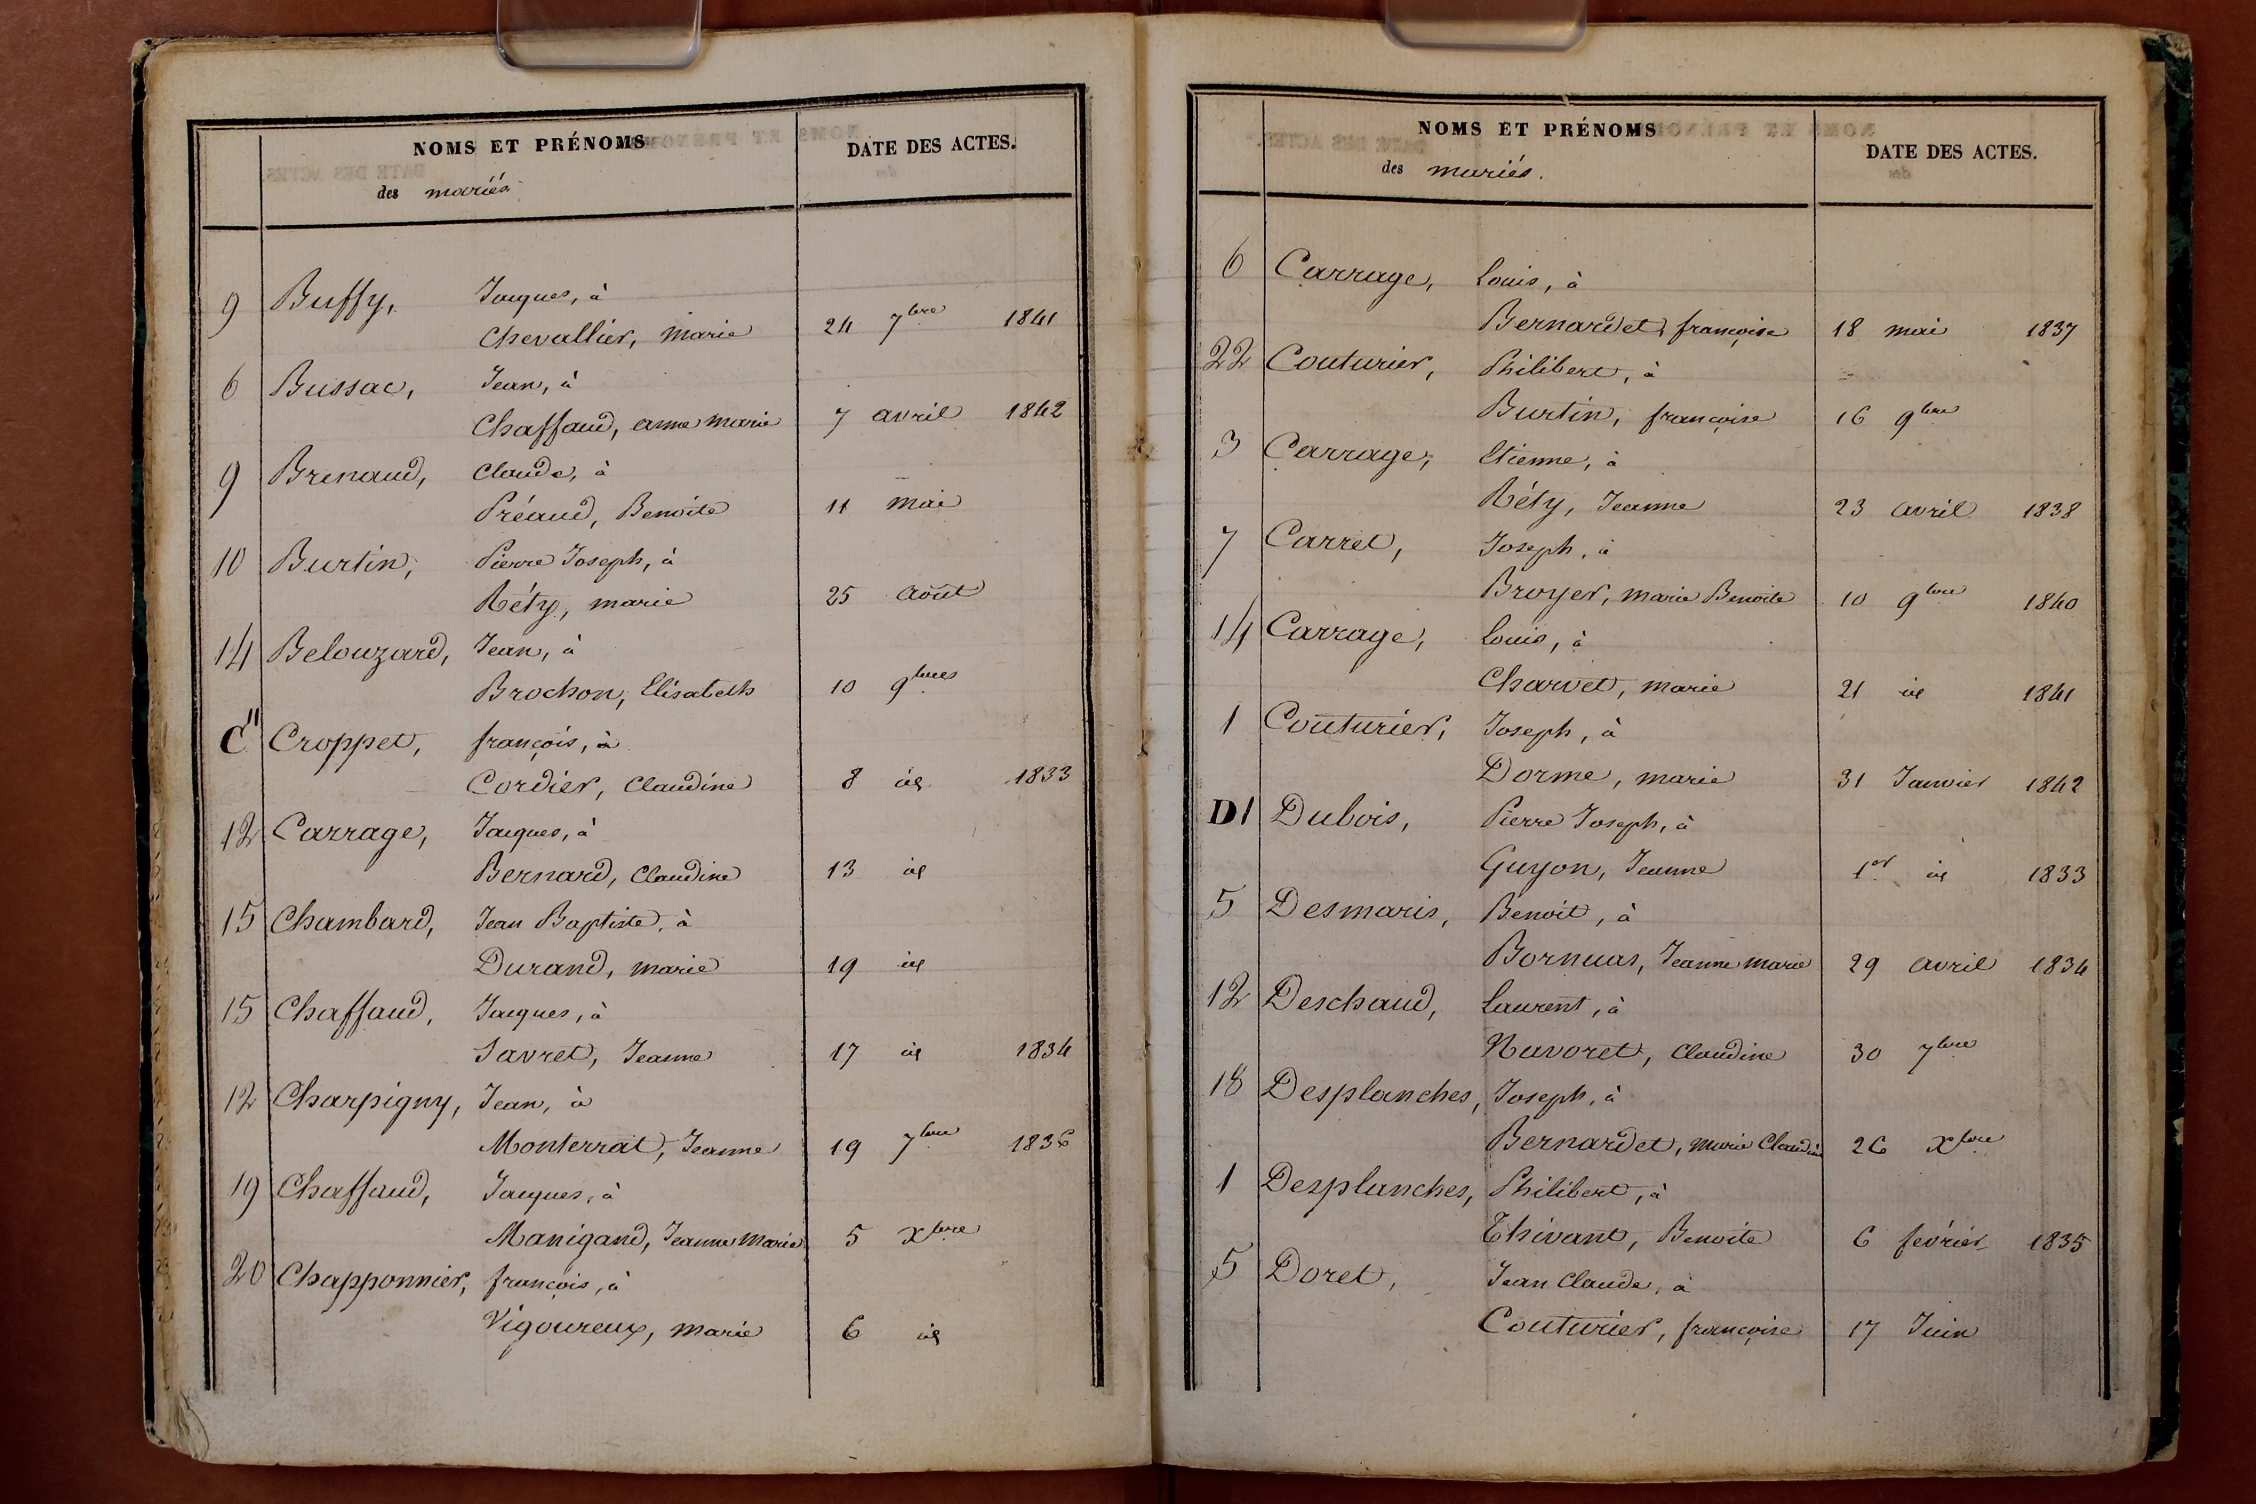 NOMS ET PRÉNOMS
des mariés
DATE DES ACTES.
9 Buffy, Jacques, à
Chevallier, Marie 24 7bre 1841
6 Bussac, Jean, à
Chaffaud, anne Marie 7 avril 1842
9 Brenaud, Claude, à
Préaud, Benoite 11 Mai
10 Burtin, Pierre Joseph, à
Réty, marie 25 Août
14 Belouzard, Jean, à
Brochon, Elisabeth 10 9bres
C 11 Croppet, françois, à
Cordier, Claudine 8 id 1833
12 Carrage, Jacques, à
Bernard, Claudine 13 id
15 Chambard, Jean Baptiste, à
Durand, marie 19 id
15 Chaffaud, Jacques, à
Savret, Jeanne 17 id 1834
12 Charpigny, Jean, à
Monterrat, Jeanne 19 7bre 1836
19 Chaffaud, Jacques, à
Manigand, Jeanne Marie 5 Xbre
20 Chapponnier, françois, à
Vigoureux, Marie 6 id
NOMS ET PRÉNOMS
des mariés.
DATE DES ACTES.
6 Carrage, Louis, à
Bernardet, françoise 18 mai 1837
22 Couturier, Philibert, à
Burtin, françoise 16 9bre
3 Carrage, Etienne, à
Réty, Jeanne 23 avril 1838
7 Carret, Joseph, à
Broyer, Marie Benoite 10 9bre 1840
14 Carrage, Louis, à
Charvet, Marie 21 id 1841
1 Couturier, Joseph, à
Dorme, marie 31 Janvier 1842
D 1 Dubois, Pierre Joseph, à
Guyon, Jeanne 1er id 1833
5 Desmaris, Benoit, à
Bornuas, Jeanne Marie 29 avril 1834
12 Deschaud, Laurent, à
Navoret, Claudine 30 7bre
18 Desplanches, Joseph, à
Bernardet, Marie Claudine 26 Xbre
1 Desplanches, Philibert, à
Thivant, Benoite 6 février 1835
5 Doret, Jean Claude, à
Couturier, françoise 17 Juin